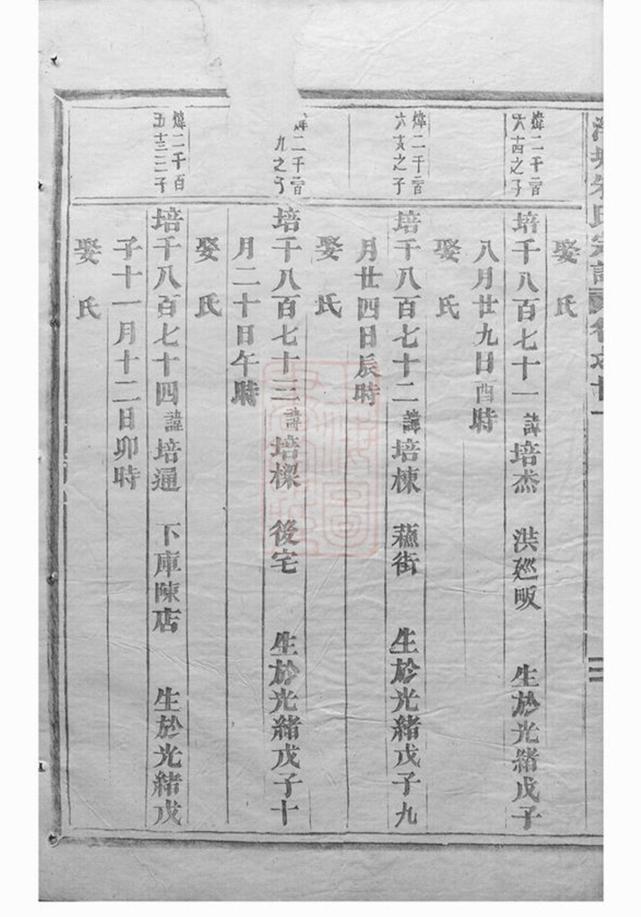 朱氏宗譜
娶氏
煒二千一百
六十四之子
培千八百七十一 諱培杰 洪廵畈 生於光緒戊子
八月廿九日酉時
娶氏
煒二千一百
六十六之子
培千八百七十二 諱培棟 蘓街 生於光緒戊子九
月廿四日辰時
娶氏
二千一百
九之子
培千八百七十三 諱培樑 後宅 生於光緒戊子十
月二十日午時
娶氏
煒二千百
培千八百七十四 諱培通 下庫陳店 生於光緒戊
子十一月十二日卯時
娶氏